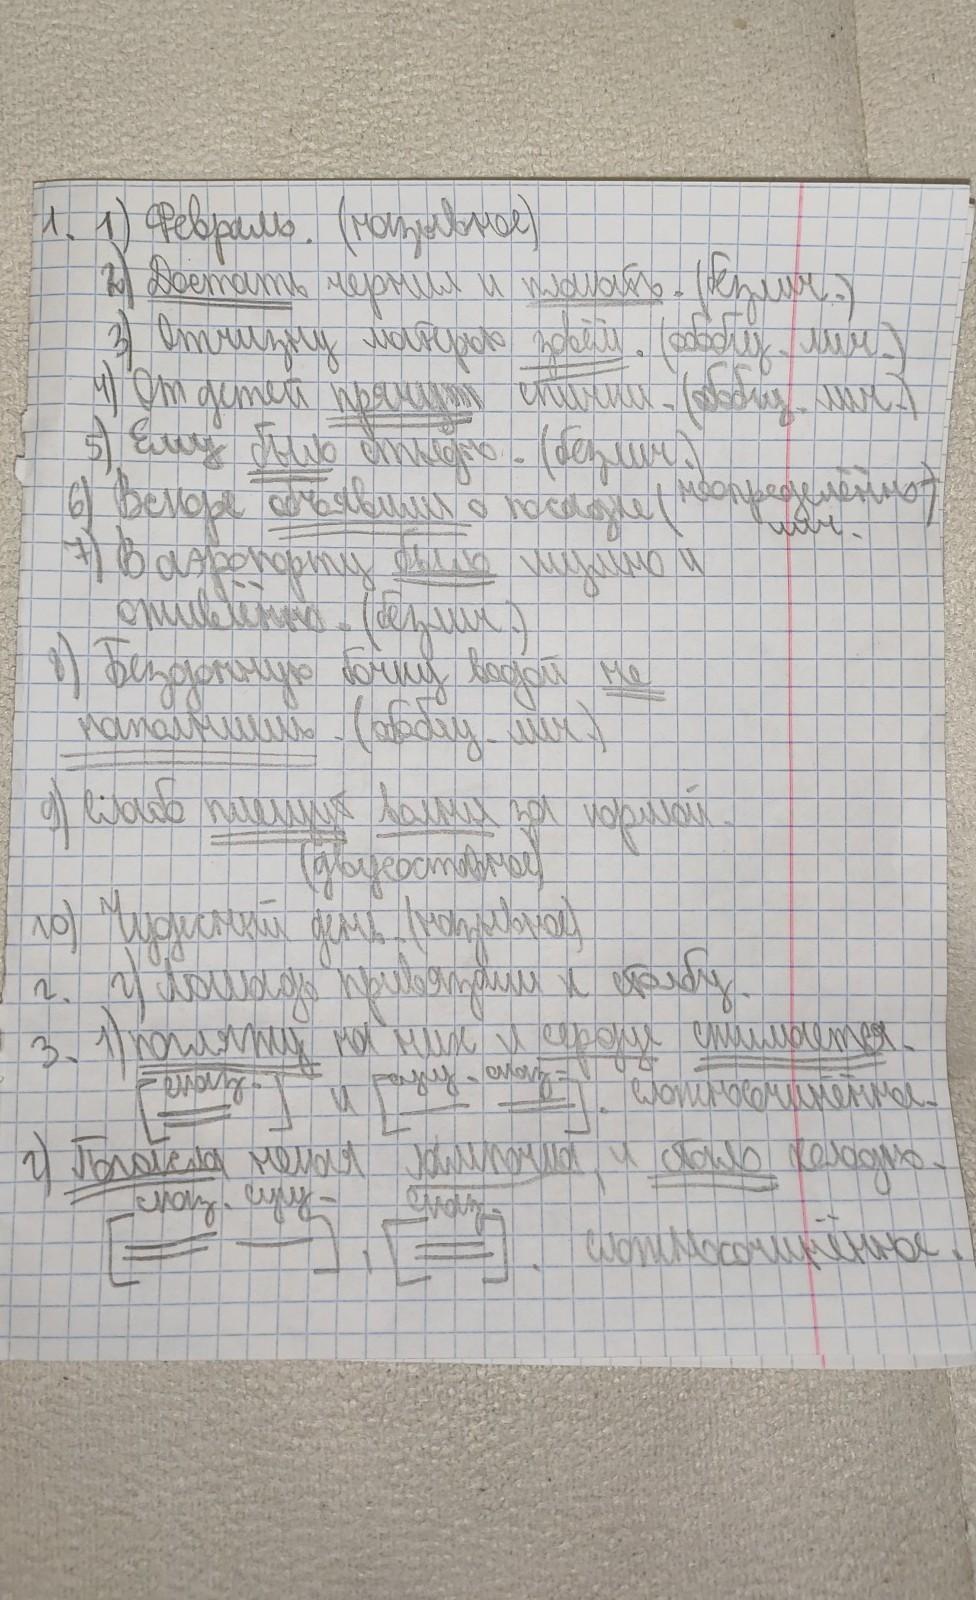 1. 1) Февраль. (назывное)
2) Достать чернил и плакать. (безлич.)
3) Отчизну матерью зовём. (обобщ. лич.)
4) От детей прячут спички. (обобщ. лич.)
5) Ему было стыдно. (безлич.)
6) Вскоре объявили о посадке (неопределённо-
лич.
7) В аэропорту было шумно и
оживлённо. (безлич.)
8) Бездонную бочку водой не
наполнишь. (обобщ. лич.)
9) Слабо плещут волны за кормой.
(двусоставное)
10) Чудесный день. (назывное)
2. 2) Лошадь привязали к столбу.
3. 1) Погляжу на них и сердце сжимается.
сказ. сущ. сказ.
[ ] и [ ]. сложносочинённое.
2) Погасла ночная лампочка, и стало холодно.
сказ. сущ. сказ.
[ ], [ ]. сложносочинённое.